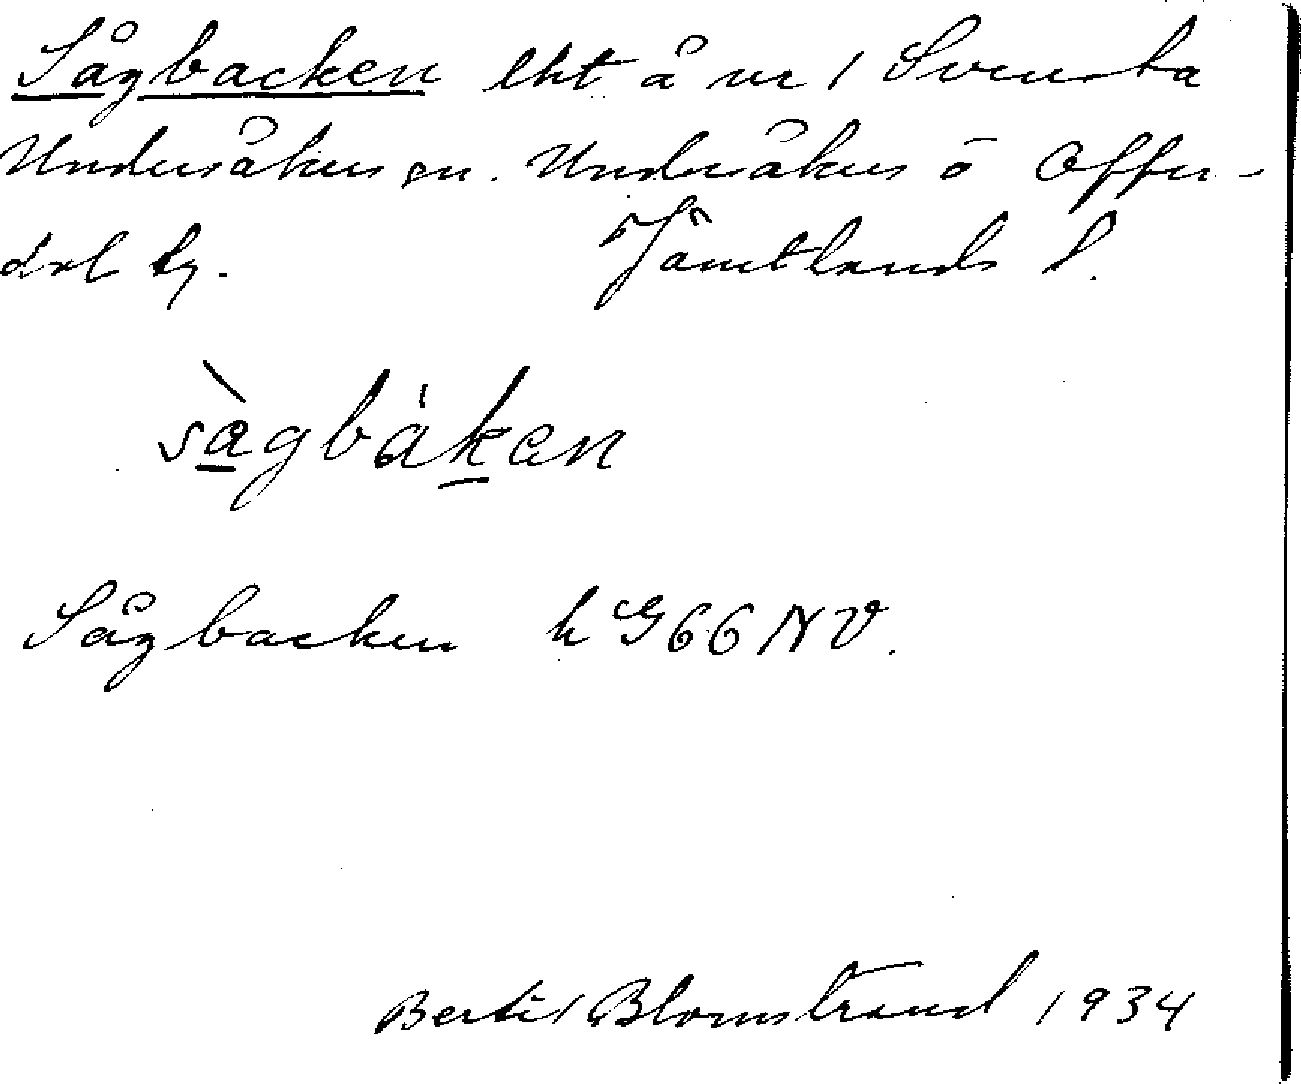 Sågbacken lht å nr 1 Svensta
Undersåkers sn. Undersåkers o Offer-
dal tg. Jämtlands l.
sàgbákan
Sågbacken h G66 NV.
Bertil Blomstrand 1934